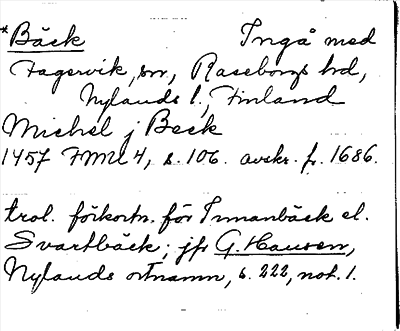 *Bäck Ingå med
Fagervik, sn, Raseborgs hd,
Nylands l., Finland
Michel j Beck
1457 FMU 4, s. 106. avskr. fr. 1686.
trol. förkortn. för Innanbäck el.
Svartbäck; jfr G. Hausen,
Nylands ortnamn, s. 222, not. 1.